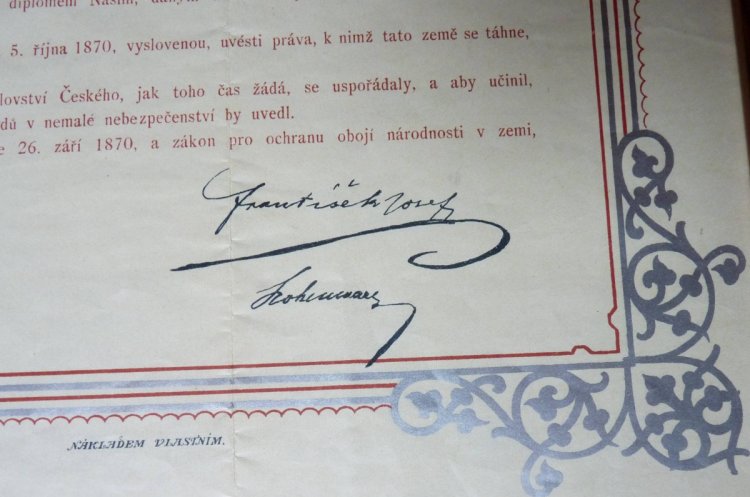 diplomem Naším, daným
5. října 1870, vyslovenou, uvésti práva, k nimž tato země se táhne,
lovství Českého, jak toho čas žádá, se uspořádaly, a aby učinil,
dů v nemalé nebezpečenství by uvedl.
e 26. září 1870, a zákon pro ochranu obojí národnosti v zemi,
František Josef
Hohenwart
NÁKLADEM VLASTNÍM.